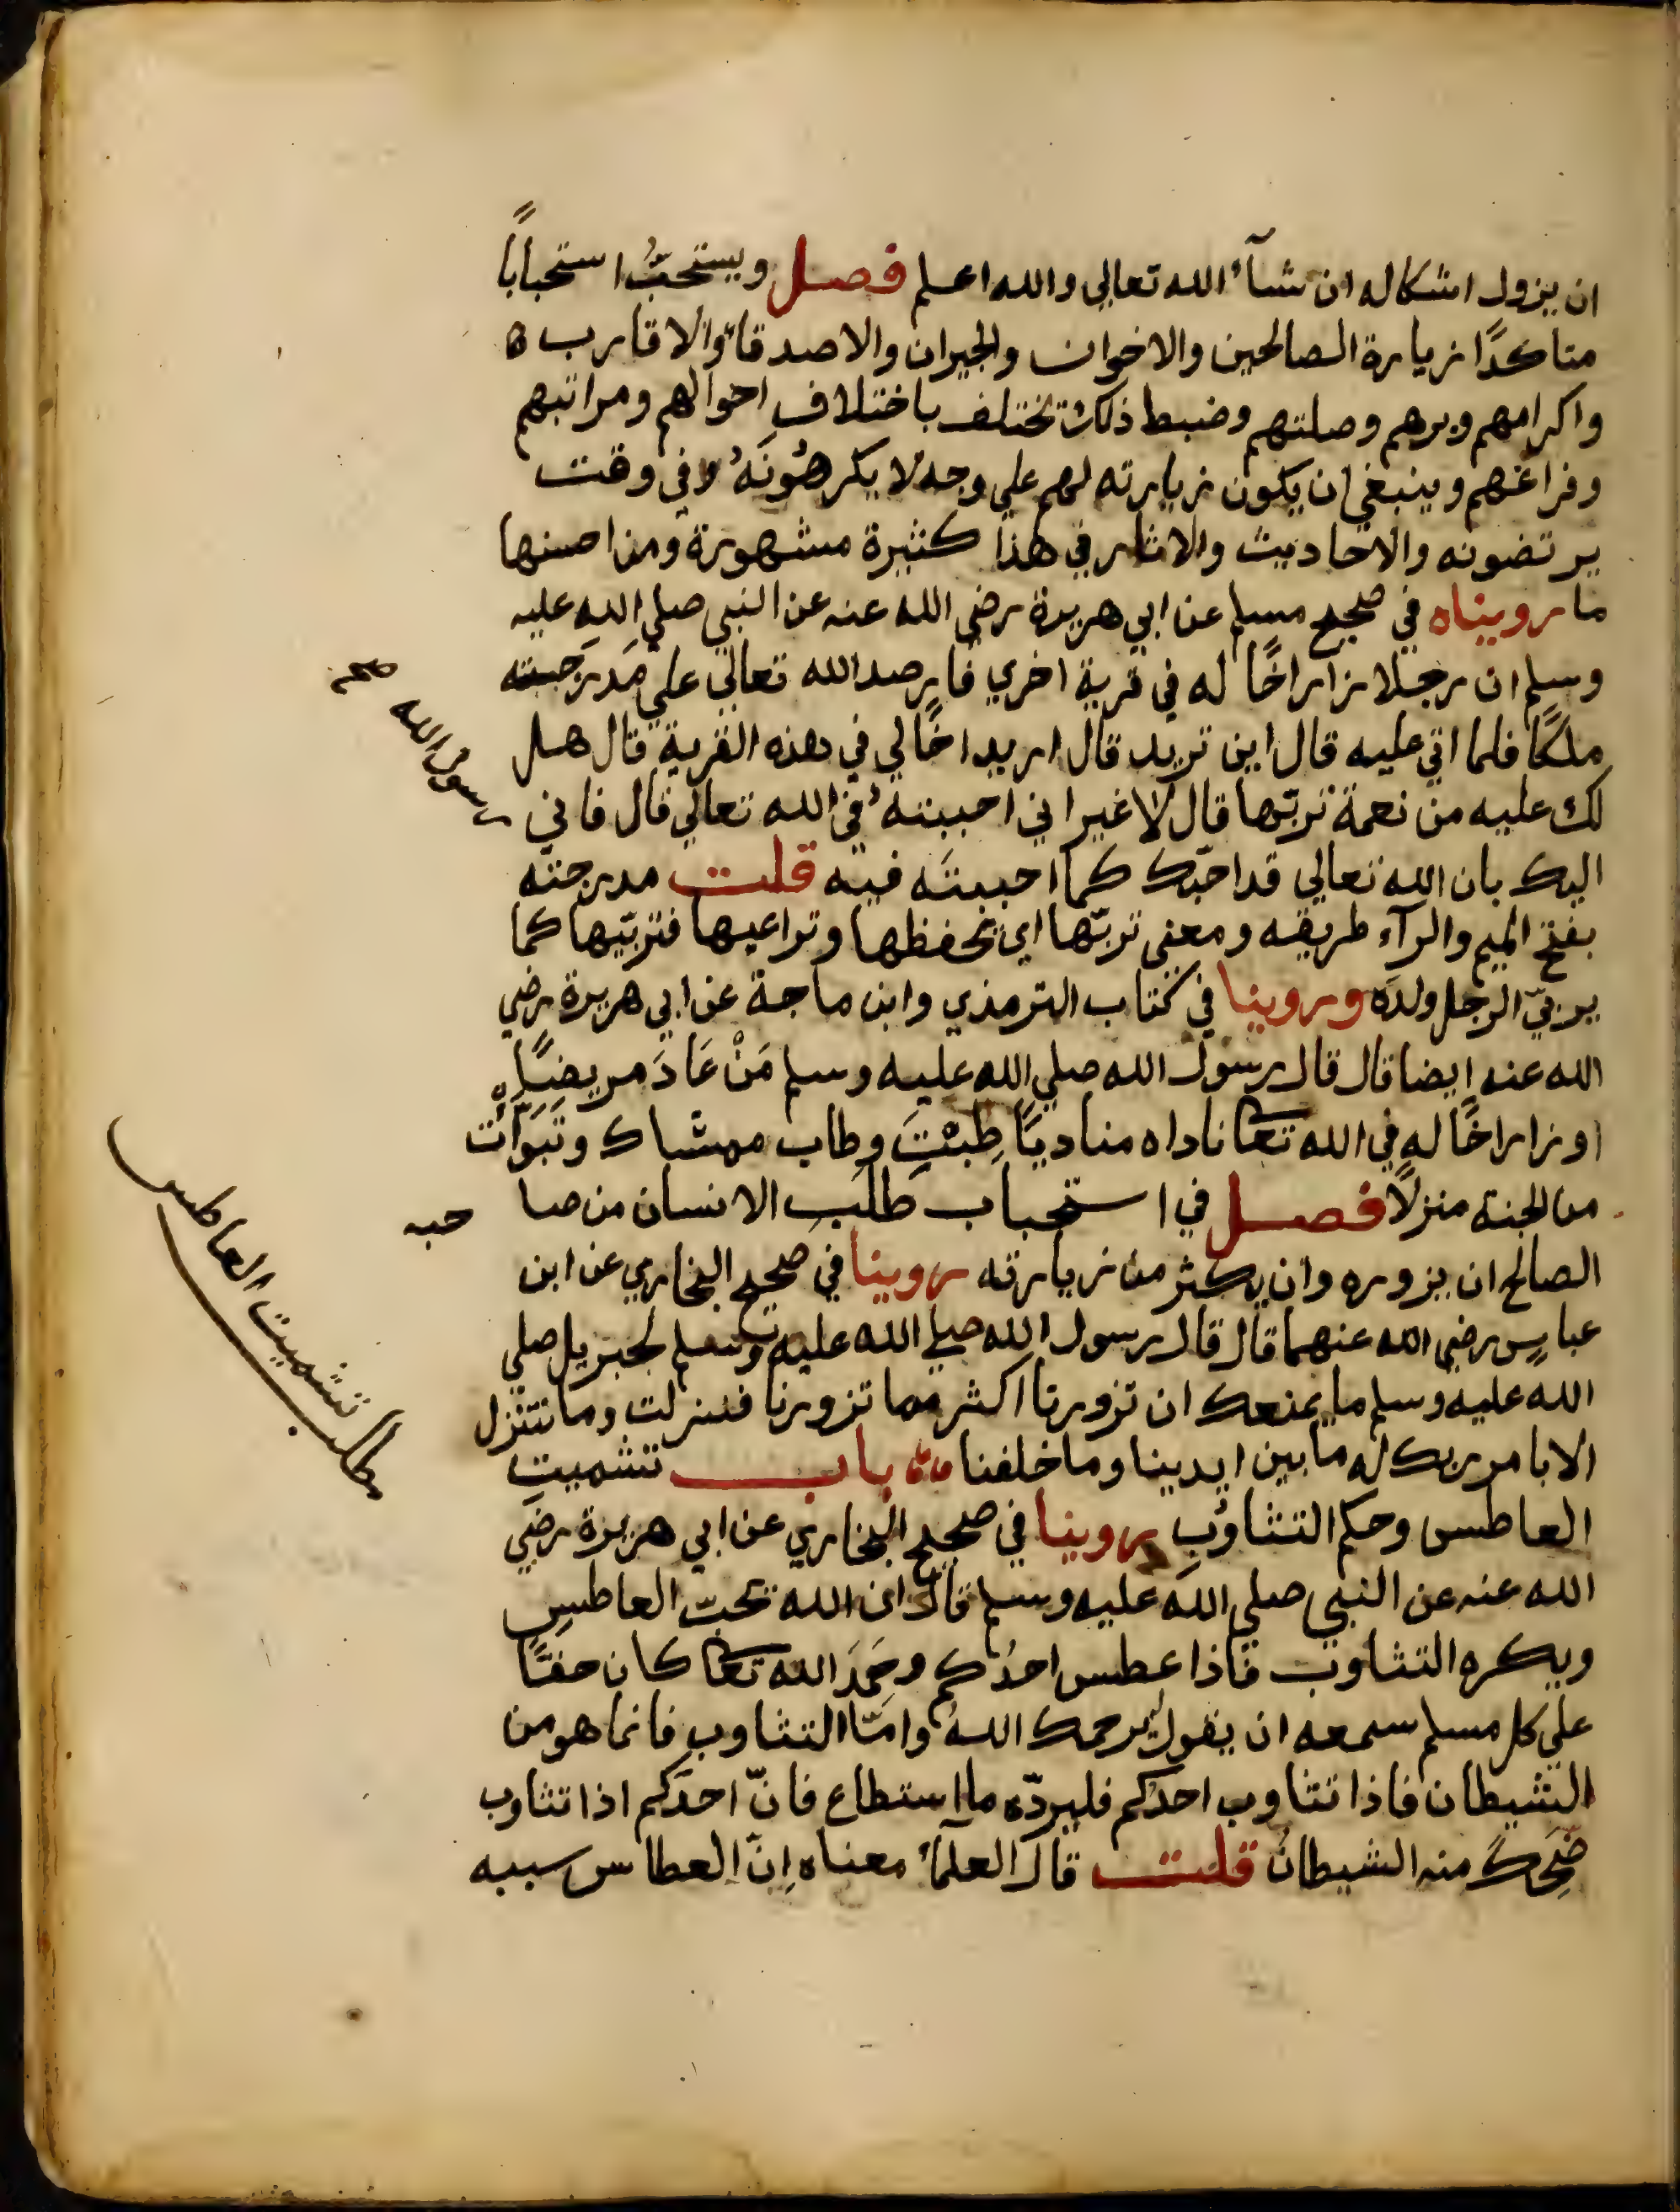 ان يزول اشكاله ان شآء الله تعالي والله اعلم فصل ويستحبُّ استحباباً
متاكدًا زيارة الصالحين والاخوان والجيران والاصدقاء والاقارب ه
واكرامهم وبرهم وصلتهم وضبط ذلك تختلف باختلاف احوالهم ومراتبهم
وفراغهم وينبغي ان يكون زيارته لهم علي وجه لا يكرهُونَهُ وفي وقت
يرتضونه والاحاديث والاثار في هذا كثيرة مشهورة ومن احسنها
ما رويناه في صحيح مسلم عن ابي هريرة رضي الله عنه عن النبي صلي الله عليه
وسلم ان رجلا زار اخًا له في قرية اخري فارصد الله تعالي علي مَدرَجته
ملكًا فلما اتي عليه قال اين تريد قال اريد اخًا لي في هذه القرية قال هل
لك عليه من نعمة تربّها قال لا غير اني احببته في الله تعالي قال فاني
رسول الله صح
اليك بان الله تعالي قد احبّك كما احببتَه فيه قلت مدرجته
بفتح الميم والرآء طريقه ومعني تربّها اي تحفظها وتراعيها فتربّيها كما
يربيّ الرجل ولدَه وروينا في كتاب الترمذي وابن ماجة عن ابي هريرة رضي
الله عنه ايضا قال قال رسول الله صلي الله عليه وسلم مَنْ عَادَ مريضًا
او زار اخًا له في الله تعا ناداه مناديًا طِبْتَ وطاب ممشاك وتَبَوَّأتَ
من الجنة منزلًا فصل في استحباب طلب الانسان من صا حبه
الصالح ان يزوره وان يكثر من زيارته روينا في صحيح البخاري عن ابن
عباسٍ رضي الله عنهما قال قال رسول الله صلي الله عليه وسلم لجبريل صلي
الله عليه وسلم ما يمنعك ان تزورنا اكثر مما تزورنا فنزلت وما نتنزل
الا بامر ربك له ما بين ايدينا وما خلفنا باب تشميت
مطلب تشميت العاطس
العاطس وحكم التثاؤب روينا في صحيح البخاري عن ابي هريرة رضي
الله عنه عن النبي صلي الله عليه وسلم قال ان الله تحبّ العاطس
ويكره التثاوب فاذا عطس احدُكم وحَمِدَ الله تعا كان حقًّا
علي كل مسلم سمعه ان يقول يرحمك اللهُ وامّا التثاوب فانما هو من
الشيطان فاذا تثاوب احدكم فليردّه ما استطاع فانّ احدَكم اذا تثاوب
ضَحِكَ منه الشيطان قلت قال العلمآء معناه اِنّ العطاس سببه